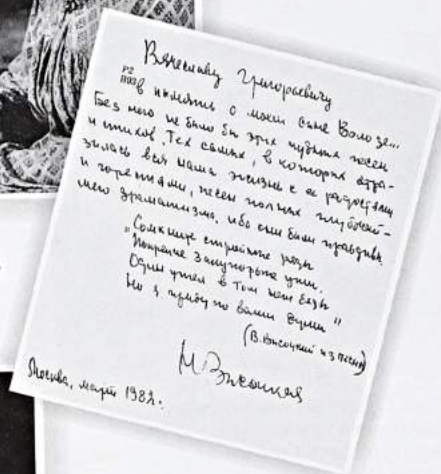 Вячеславу Григорьевичу
в память о моем сыне Володе...
Без него не было бы этих чудных песен
и стихов. Тех самых, в которых отра-
зилась вся наша жизнь с ее радостями
и горестями, песен полных глубочай-
шего драматизма, ибо они были правдивы.
"Сомкните стройные ряды
Покрепче закупорьте уши,
Один ушел в том нет беды
Но я приду по ваши души"
(В. Высоцкий из песни)
Н. Высоцкая
Москва, март 1982г.